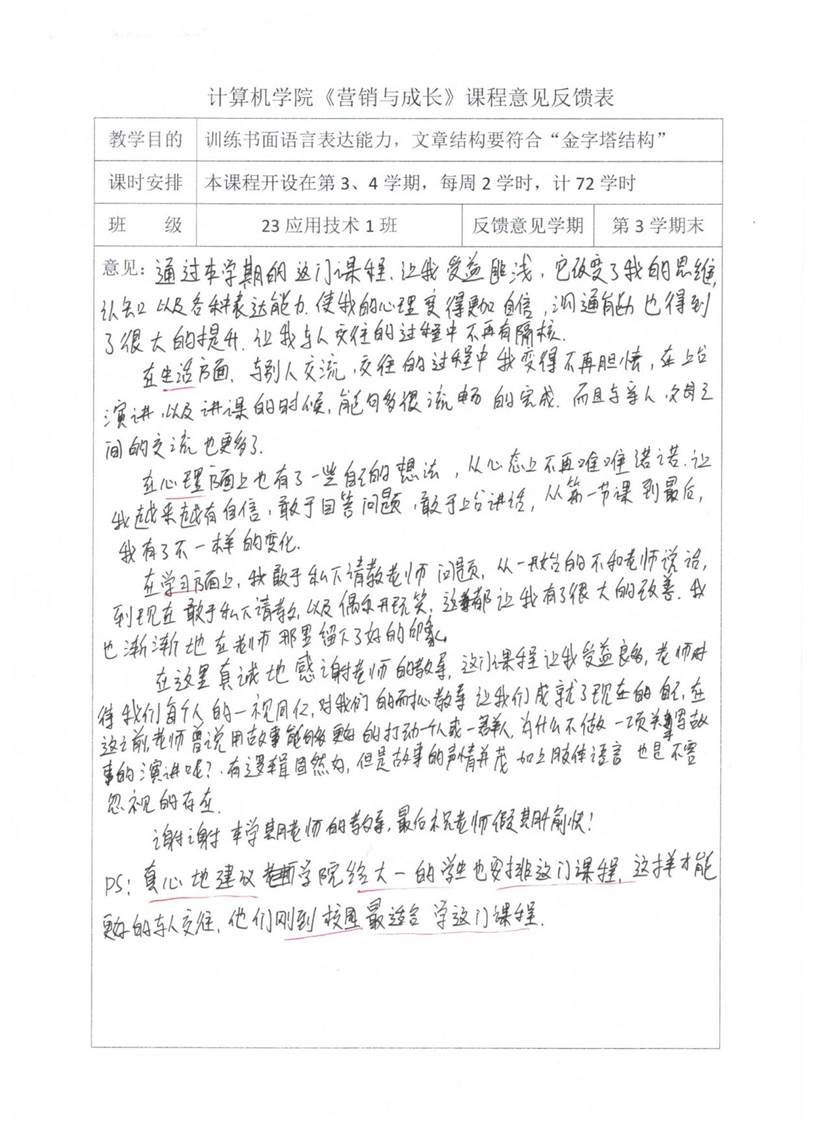 计算机学院《营销与成长》课程意见反馈表
教学目的 训练书面语言表达能力，文章结构要符合“金字塔结构”
课时安排 本课程开设在第 3、4 学期，每周 2 学时，计 72 学时
班 级 23 应用技术 1 班 反馈意见学期 第 3 学期末
意见：通过本学期的这门课程，让我受益匪浅，它改变了我的思维，
认知以及各种表达能力，使我的心理变得更加自信，沟通能力也得到
了很大的提升，让我与人交往的过程中不再有隔核.
在生活方面，与别人交流，交往的过程中我变得不再胆怯，在上台
演讲，以及讲课的时候，能够很流畅的完成. 而且与亲人，父母之
间的交流也更多了.
在心理方面上也有了一些自己的想法，从心态上不再唯唯诺诺. 让
我越来越有自信，敢于回答问题，敢于上台讲话，从第一节课到最后，
我有了不一样的变化.
在学习方面上，我敢于私下请教老师问题，从一开始的不和老师说话，
到现在敢于私下请教，以及偶尔开玩笑，这都让我有了很大的改善. 我
也渐渐地在老师那里留下了好的印象.
在这里真诚地感谢老师的教导，这门课程让我受益良多，老师对
待我们每个人的一视同仁，对我们的耐心教导让我们成就了现在的自己，在
这之前，老师曾说用故事能够更好的打动一个人或一群人，为什么不做一项关于写故
事的演讲呢？有逻辑固然好，但是故事的声情并茂加上肢体语言也是不容
忽视的存在.
谢谢本学期老师的教导，最后祝老师假期愉快！
PS：真心地建议学院给大一的学生也安排这门课程，这样才能
更好的与人交往，他们刚到校园最适合学这门课程.